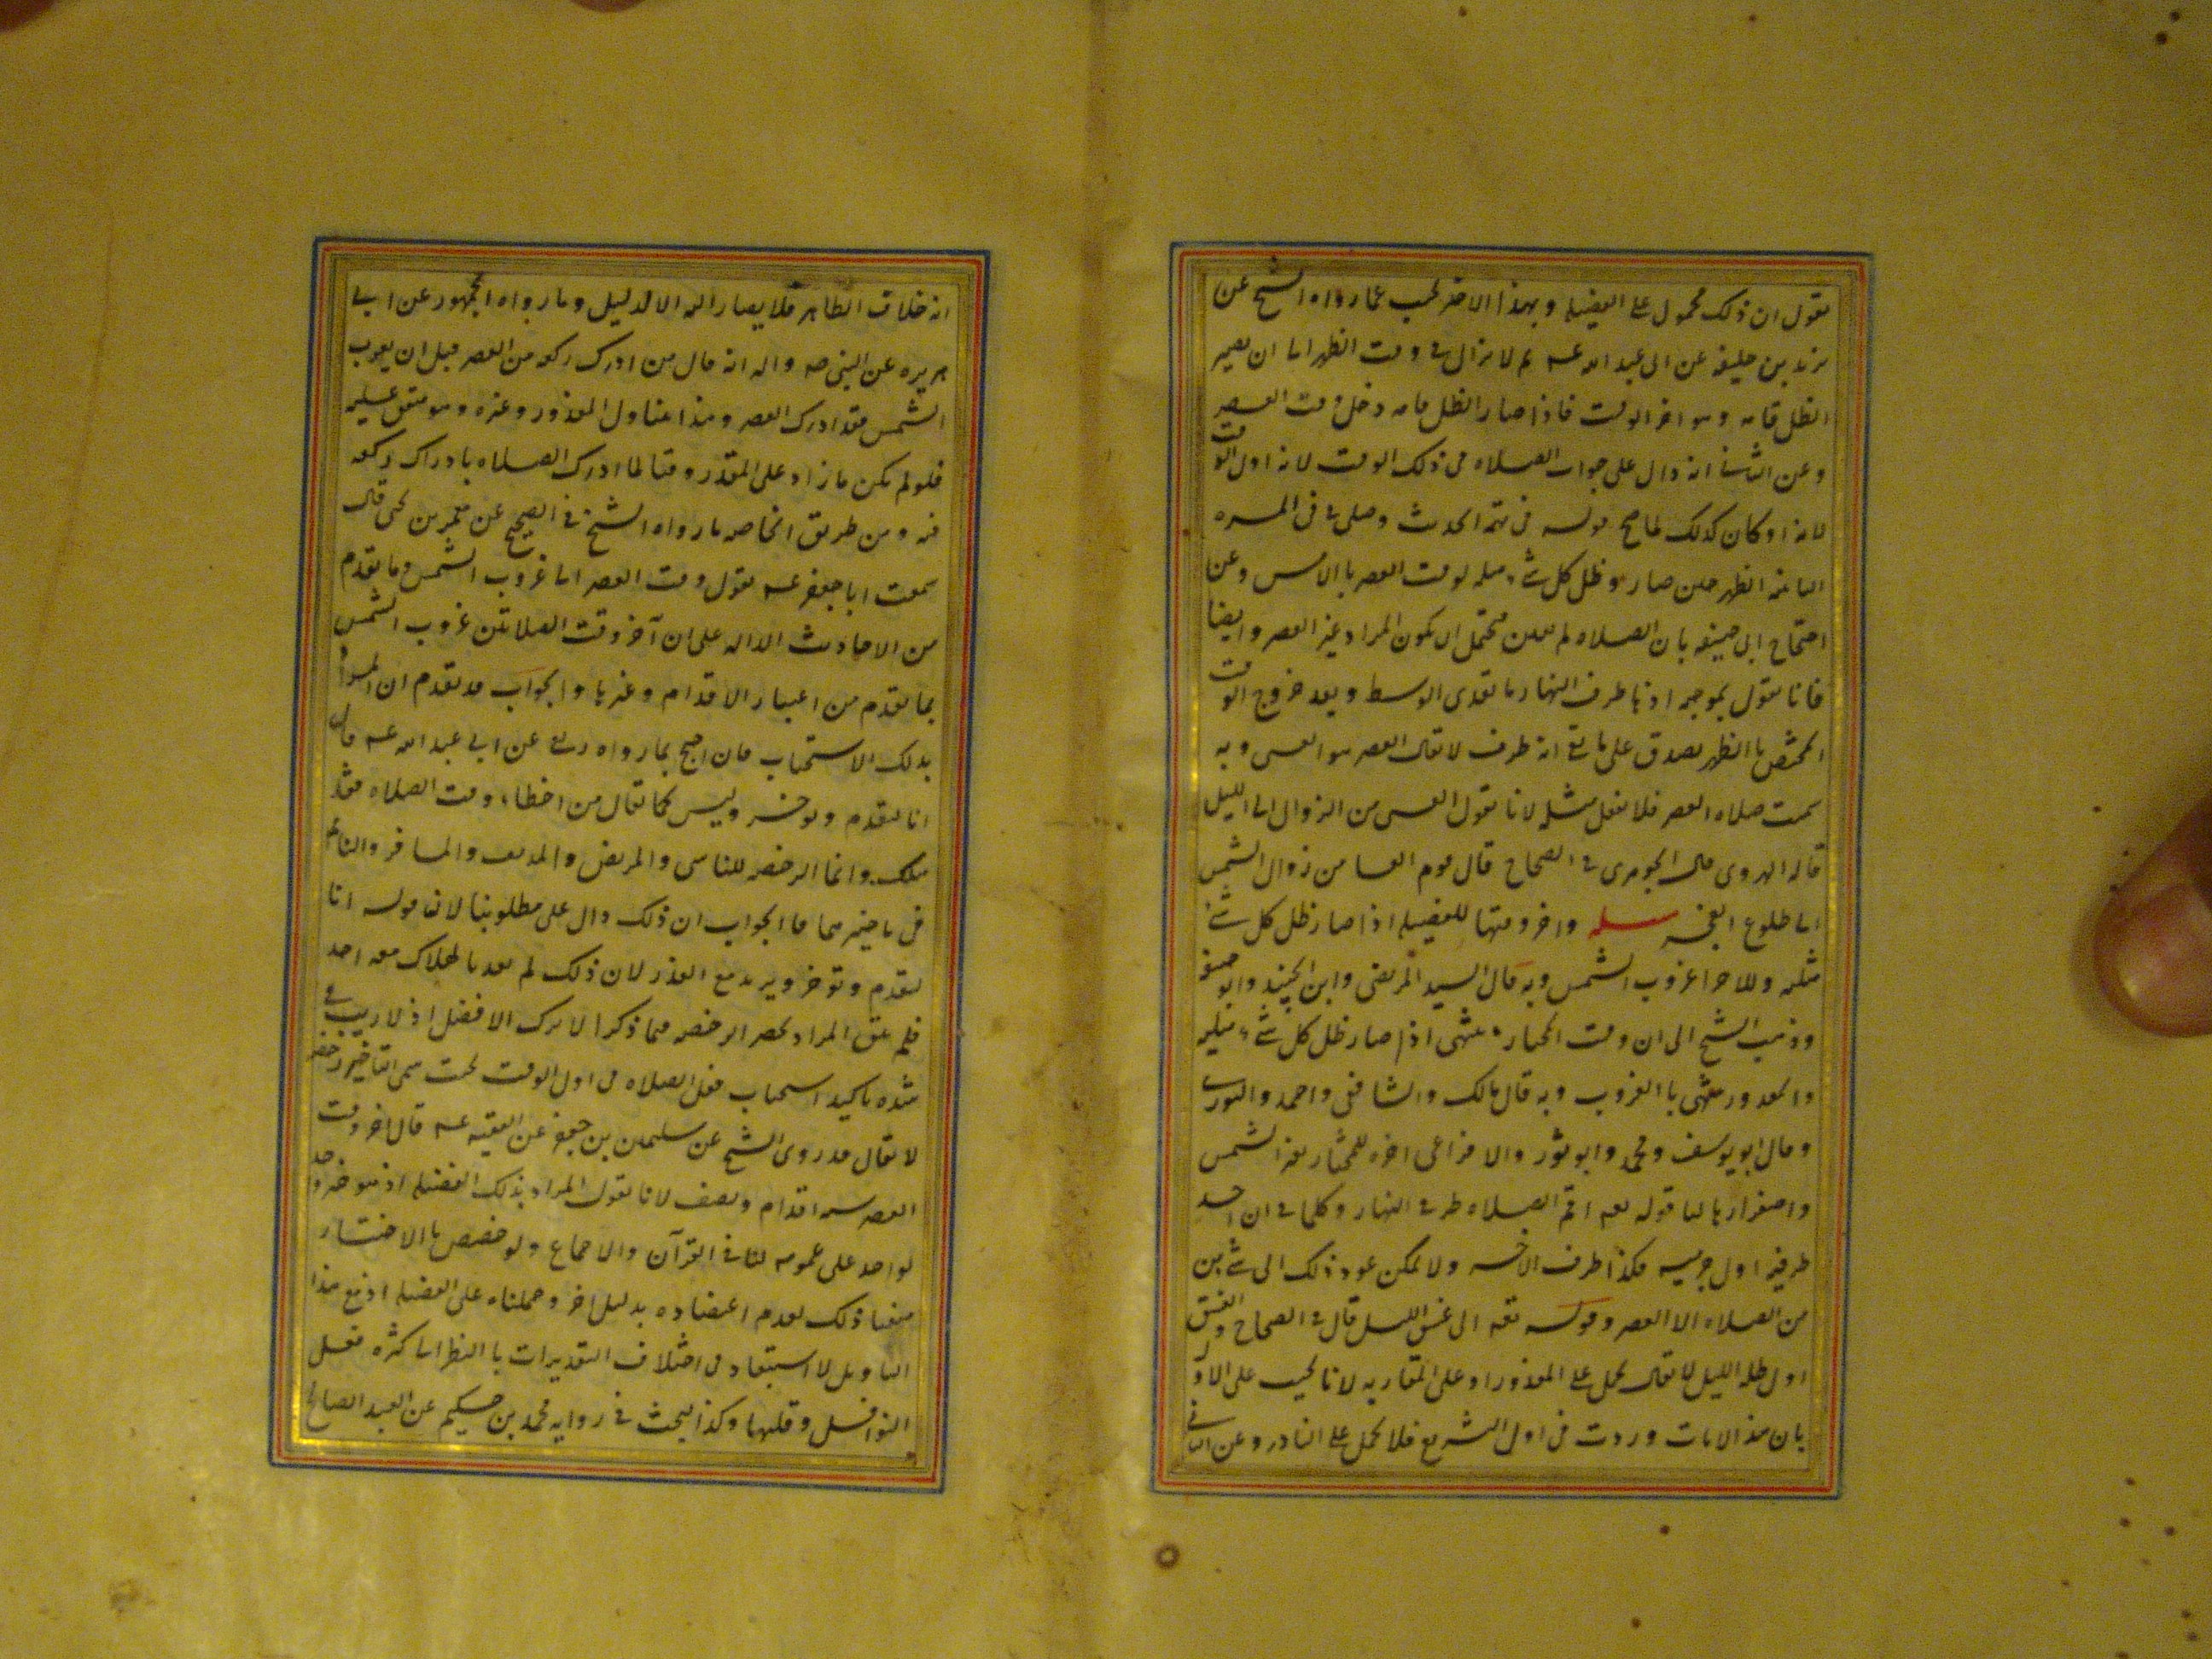 نقول ان ذلك محمول على الفضيله وبهذا الاخير نجيب عما رواه الشيخ عن
يزيد بن خليفه عن ابى عبد الله عـه لم لا يزال فى وقت الظهر الى ان يصير
الظل قامه وهو اخر الوقت فاذا صار الظل قامه دخل وقت العصر
وعن الثانى انه دال على جواب الصلاه فى ذلك الوقت لانه اول الوقت
لانه لو كان كذلك لما صح قوله فى تتمه الحديث وصلى فى المره
الثانيه الظهر حين صار ظل كل شئ مثله لوقت العصر بالامس وعن
احتجاج ابى حنيفه بان الصلاه لم تعين فيحتمل ان يكون المراد غير العصر وايضا
فانا نقول بموجبه اذ ما طرف النهار ما تعدى الاوسط وبعد خروج الوقت
المختص بالظهر يصدق على ما بقى انه طرف لا يقال العصر هو العشى وبه
سميت صلاه العصر فلا تفعل مثله لانا نقول العشى من الزوال الى الليل
قاله الهروى قال الجوهرى فى الصحاح قال قوم العشا من زوال الشمس
الى طلوع الفجر مسله واخر وقتها للفضيله اذا صار ظل كل شئ
مثليه وللاجزا غروب الشمس وبه قال السيد المرتضى وابن الجنيد وابو حنيفه
وذهب الشيخ الى ان وقت المختار ينتهى اذا صار ظل كل شئ مثليه
والمعذور ينتهى بالغروب وبه قال مالك والشافعى واحمد والثورى
وقال ابو يوسف ومحمد وابو ثور والاوزاعى اخره للمختار تغير الشمس
واصفرارها لنا قوله تعه اقم الصلاه طرفى النهار وكلما فى ان احد
طرفيه اول جزئيه فكذا طرف الاخر ولا يمكن عود ذلك الى شئ من
من الصلاه الا العصر وقوله تعه الى غسق الليل قال فى الصحاح والغسق
اول ظلمه الليل لا يقال يحمل على المعذور او على المقاربه لانا نجيب على الاول
بان هذه الايات وردت فى اول التشريع فلا يحمل على النادر وعن الثانى
انه خلاف الظاهر فلا يصار اليه الا لدليل وما رواه الجمهور عن ابى
هريره عن النبى صه واله انه قال من ادرك ركعه من العصر قبل ان يغرب
الشمس فقد ادرك العصر وهذا يتناول المعذور وغيره وهو متفق عليه
فلو لم يكن ما زاد على المقدر وقتا لما ادرك الصلاه بادراك ركعه
فيه ومن طريق الخاصه ما رواه الشيخ فى الصحيح عن معمر بن يحيى قال
سمعت ابا جعفر عـه يقول وقت العصر الى غروب الشمس وما تقدم
من الاحاديث الداله على ان آخر وقت الصلاتين غروب الشمس
بما تقدم من اعتبار الاقدام وغيرها والجواب قد تقدم ان المراد
بذلك الاستحباب فان احتج بما رواه ربعى عن ابى عبد الله عـه قال
انا لنقدم ونوخر وليس كما يقال من اخطاء وقت الصلاه فقد
هلك وانما الرخصه للناسى والمريض والمدنف والمسافر والنائم
فى تاخيرها فالجواب ان ذلك دال على مطلوبنا لان قوله انا
لنقدم ونوخر ويريد مع العذر لان ذلك لم يعد بالهلاك معه احد
فلم يبق المراد بحصر الرخصه فيما ذكر الا ترك الافضل اذ لا ريب فى
شده تاكيد استحباب فعل الصلاه فى اول الوقت بحيث سمى التاخير رخصه
لا يقال قد روى الشيخ عن سليمان بن جعفر عن الفقيه عـه قال اخر وقت
العصر سته اقدام ونصف لانا نقول المراد بذلك الفضيله اذ هو خبر واحد
لو اخذ على عمومه لنافى القرآن والاجماع ولو خصص بالاختيار
منعنا ذلك لعدم اعتضاده بدليل اخر وحملناه على الفضيله اذ مع هذا
التاويل لا استبعاد فى اختلاف التقديرات بالنظر الى كثره فعل
النوافل وقلتها وكذا البحث فى روايه محمد بن حكيم عن العبد الصالح